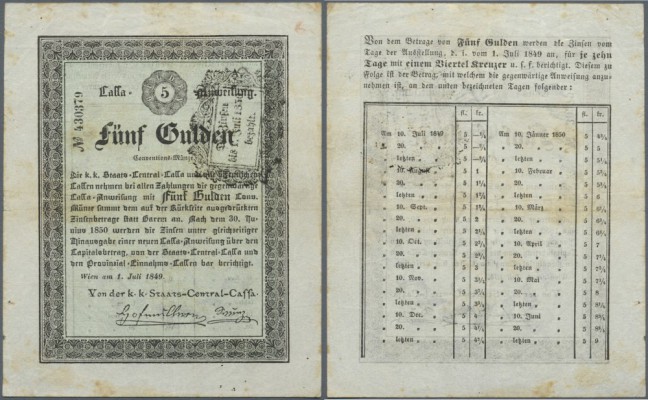 Cassa- 5 Anweisung.
№ 430379
Fünf Gulden
Conventions-Münze.
Die k. k. Staats-Central-Cassa und
Cassen nehmen bei allen Zahlungen die gegenwärtige
Cassa-Anweisung mit Fünf Gulden Conv.
Münze sammt dem auf der Rückseite ausgedrückten
Zinsenbetrage statt Barem an. Nach dem 30. Ju-
nius 1850 werden die Zinsen unter gleichzeitiger
Hinausgabe einer neuen Cassa-Anweisung über den
Capitalsbetrag, von der Staats-Central-Cassa und
den Provinzial-Einnahms-Cassen bar berichtigt.
Wien am 1. Juli 1849.
Von der k. k. Staats-Central-Cassa.
Die Zinsen
bis 1850
bezahlt.
Von dem Betrage von Fünf Gulden werden die Zinsen vom
Tage der Ausstellung, d. i. vom 1. Juli 1849 an, für je zehn
Tage mit einem Viertel Kreuzer u. s. f. berichtigt. Diesem zu
Folge ist der Betrag, mit welchem die gegenwärtige Anweisung anzu-
nehmen ist, an den unten bezeichneten Tagen folgender:
fl. kr. fl. kr.
Am 10. Juli 1849 5 –¼ Am 10. Jänner 1850 5 4¾
„ 20. „ „ 5 –½ „ 20. „ „ 5 5
„ letzten „ „ 5 –¾ „ letzten „ „ 5 5¼
„ 10. August „ 5 1 „ 10. Februar „ 5 5½
„ 20. „ „ 5 1¼ „ 20. „ „ 5 5¾
„ letzten „ „ 5 1½ „ letzten „ „ 5 6
„ 10. Sept. „ 5 1¾ „ 10. März „ 5 6¼
„ 20. „ „ 5 2 „ 20. „ „ 5 6½
„ letzten „ „ 5 2¼ „ letzten „ „ 5 6¾
„ 10. Oct. „ 5 2½ „ 10. April „ 5 7
„ 20. „ „ 5 2¾ „ 20. „ „ 5 7¼
„ letzten „ „ 5 3 „ letzten „ „ 5 7½
„ 10. Nov. „ 5 3¼ „ 10. Mai „ 5 7¾
„ 20. „ „ 5 3½ „ 20. „ „ 5 8
„ letzten „ „ 5 3¾ „ letzten „ „ 5 8¼
„ 10. Dec. „ 5 4 „ 10. Juni „ 5 8½
„ 20. „ „ 5 4¼ „ 20. „ „ 5 8¾
„ letzten „ „ 5 4½ „ letzten „ „ 5 9